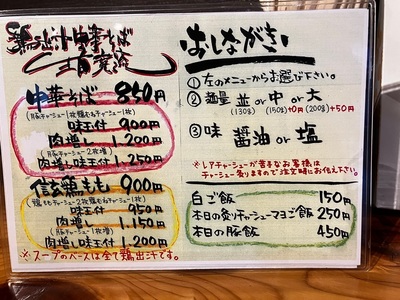 鶏出汁中華そば
中華そば 850円
(豚チャーシュー1枚鶏むねチャーシュー1枚)
味玉付 900円
肉増し 1,200円
(豚チャーシュー2枚増)
肉増し味玉付 1,250円
信玄鶏もも 900円
味玉付 950円
肉増し 1,150円
肉増し味玉付 1,200円
※スープのベースは全て鶏出汁です。
おしながき
①左のメニューからお選び下さい。
②麺量 並 or 中 or 大
(130g) (150g)+0円 (200g)+50円
③味 醤油 or 塩
※レアチャーシューが苦手なお客様は
チャーシュー炙りますので注文時にお伝え下さい。
白ご飯 150円
本日の炙りチャーシューマヨご飯 250円
本日の豚飯 450円